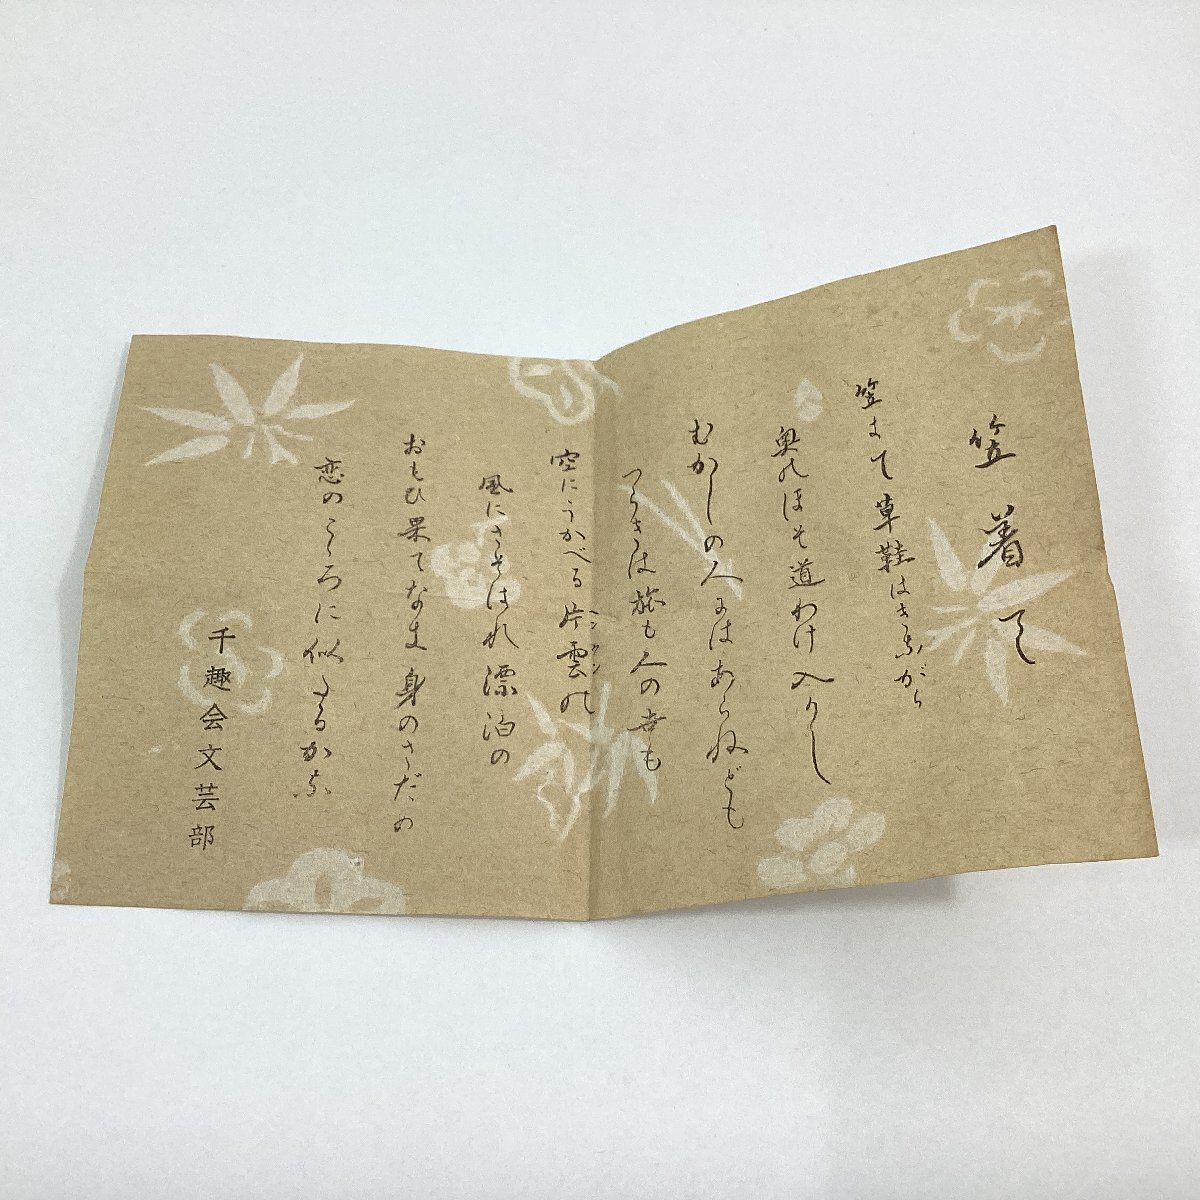 笠着て
笠きて草鞋はきながら
奥のほそ道わけ入りし
むかしの人にはあらねども
つらきは旅も人の世も
空にうかべる片雲の
ヘンウン
風にさそはれ漂泊の
おもひ果てなき身のさだめ
恋のこころに似たるかな
千趣会文芸部